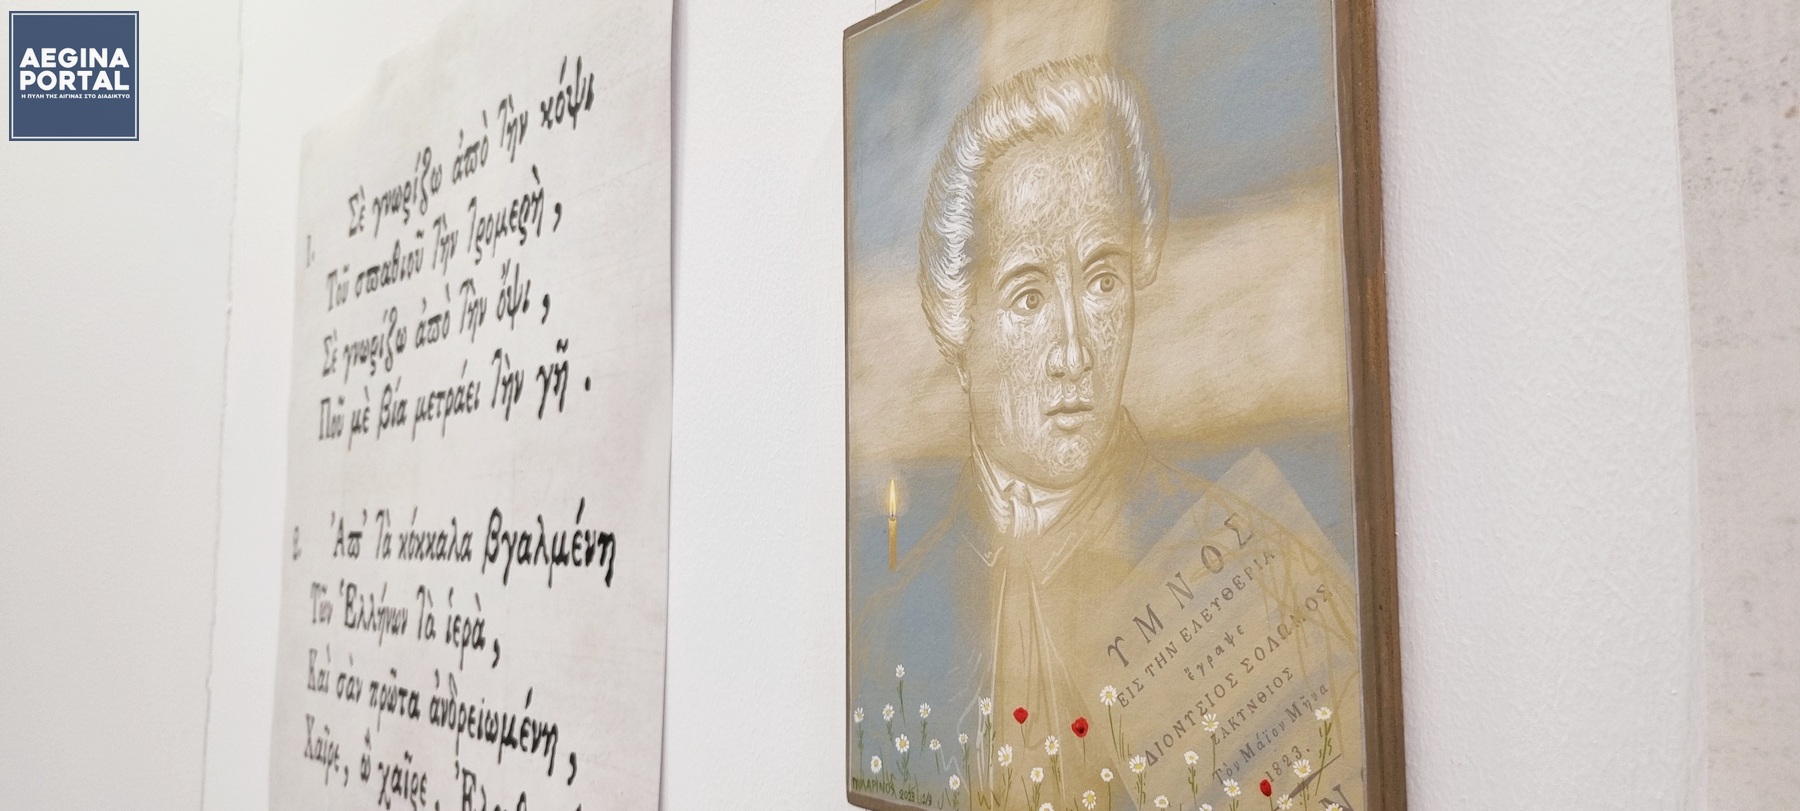 AEGINA
PORTAL
Η ΠΥΛΗ ΤΗΣ ΑΙΓΙΝΑΣ ΣΤΟ ΔΙΑΔΙΚΤΥΟ
1. Σὲ γνωρίζω ἀπὸ τὴν κόψι
Τοῦ σπαθιοῦ τὴν τρομερὴ,
Σὲ γνωρίζω ἀπὸ τὴν ὄψι,
Ποῦ μὲ βία μετράει τὴν γῆ.
2. Ἀπ' τὰ κόκκαλα βγαλμένη
Τῶν Ἑλλήνων τὰ ἱερὰ,
Καὶ σὰν πρῶτα ἀνδρειωμένη,
Χαῖρε, ὦ χαῖρε,
ΥΜΝΟΣ
ΕΙΣ ΤΗΝ ΕΛΕΥΘΕΡΙΑ
ἔγραψε
ΔΙΟΝΥΣΙΟΣ ΣΟΛΩΜΟΣ
ΖΑΚΥΝΘΙΟΣ
Τὸν Μάϊον Μῆνα
1823.
ΠΙΛΑΡΙΝΟΣ 2023